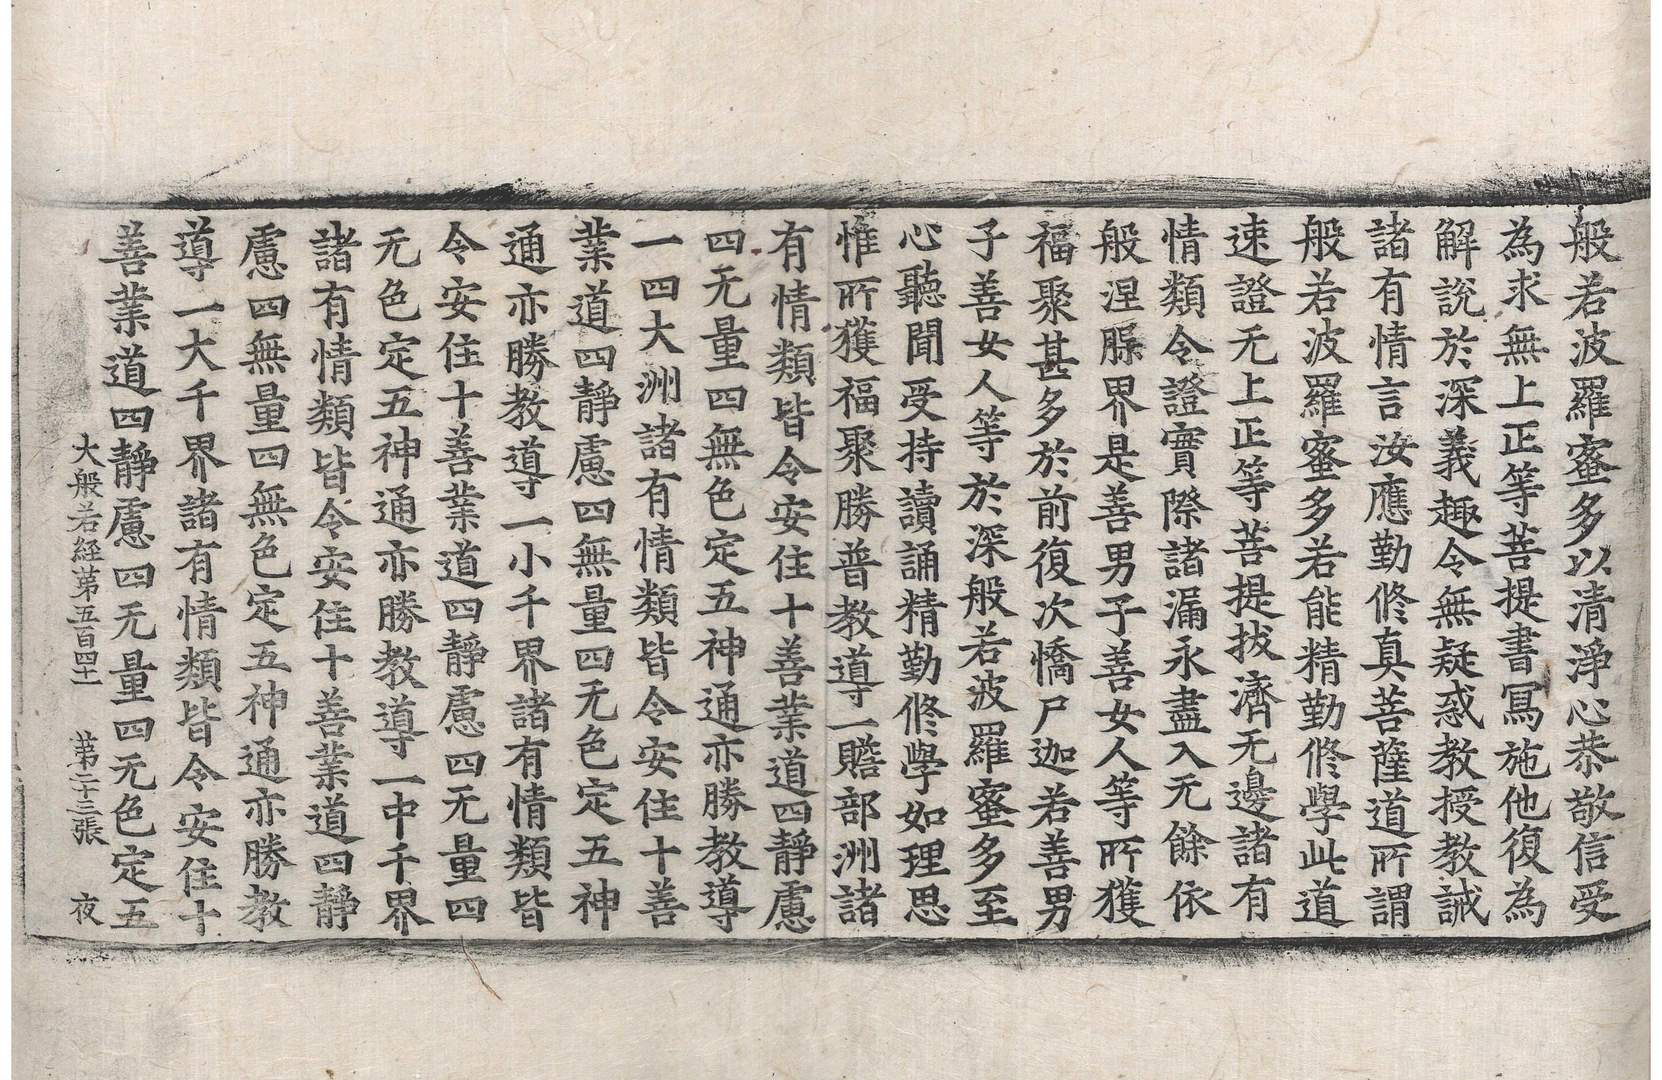 般若波羅蜜多以清淨心恭敬信受
為求無上正等菩提書寫施他復為
解說於深義趣令無疑惑教授教誡
諸有情言汝應勤修真菩薩道所謂
般若波羅蜜多若能精勤修學此道
速證无上正等菩提拔濟无邊諸有
情類令證實際諸漏永盡入无餘依
般涅槃界是善男子善女人等所獲
福聚甚多於前復次憍尸迦若善男
子善女人等於深般若波羅蜜多至
心聽聞受持讀誦精勤修學如理思
惟所獲福聚勝普教導一贍部洲諸
有情類皆令安住十善業道四靜慮
四无量四無色定五神通亦勝教導
一四大洲諸有情類皆令安住十善
業道四靜慮四無量四无色定五神
通亦勝教導一小千界諸有情類皆
令安住十善業道四靜慮四无量四
无色定五神通亦勝教導一中千界
諸有情類皆令安住十善業道四靜
慮四無量四無色定五神通亦勝教
導一大千界諸有情類皆令安住十
善業道四靜慮四无量四无色定五
大般若経第五百四十一 第二十三張 夜